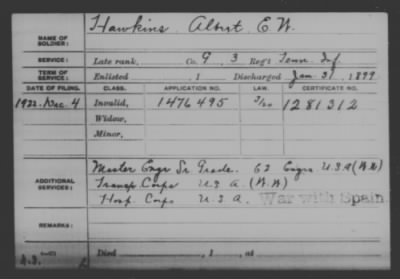 NAME OF SOLDIER: Hawkins, Albert E. W.
SERVICE: Late rank, Co. G, 3 Reg't Tenn. Inf.
TERM OF SERVICE: Enlisted , 1 Discharged Jan. 31, 1899
DATE OF FILING. CLASS. APPLICATION NO. LAW. CERTIFICATE NO.
1922. Dec. 4 Invalid, 1476495 1281312
Widow,
Minor,
Master Engr Sr. Grade. 62 Engrs U.S.A (W.W)
ADDITIONAL SERVICES: Transp. Corps U.S.A. (W.W)
Hosp. Corps U.S.A. War with Spain.
REMARKS:
Died , 1 , at